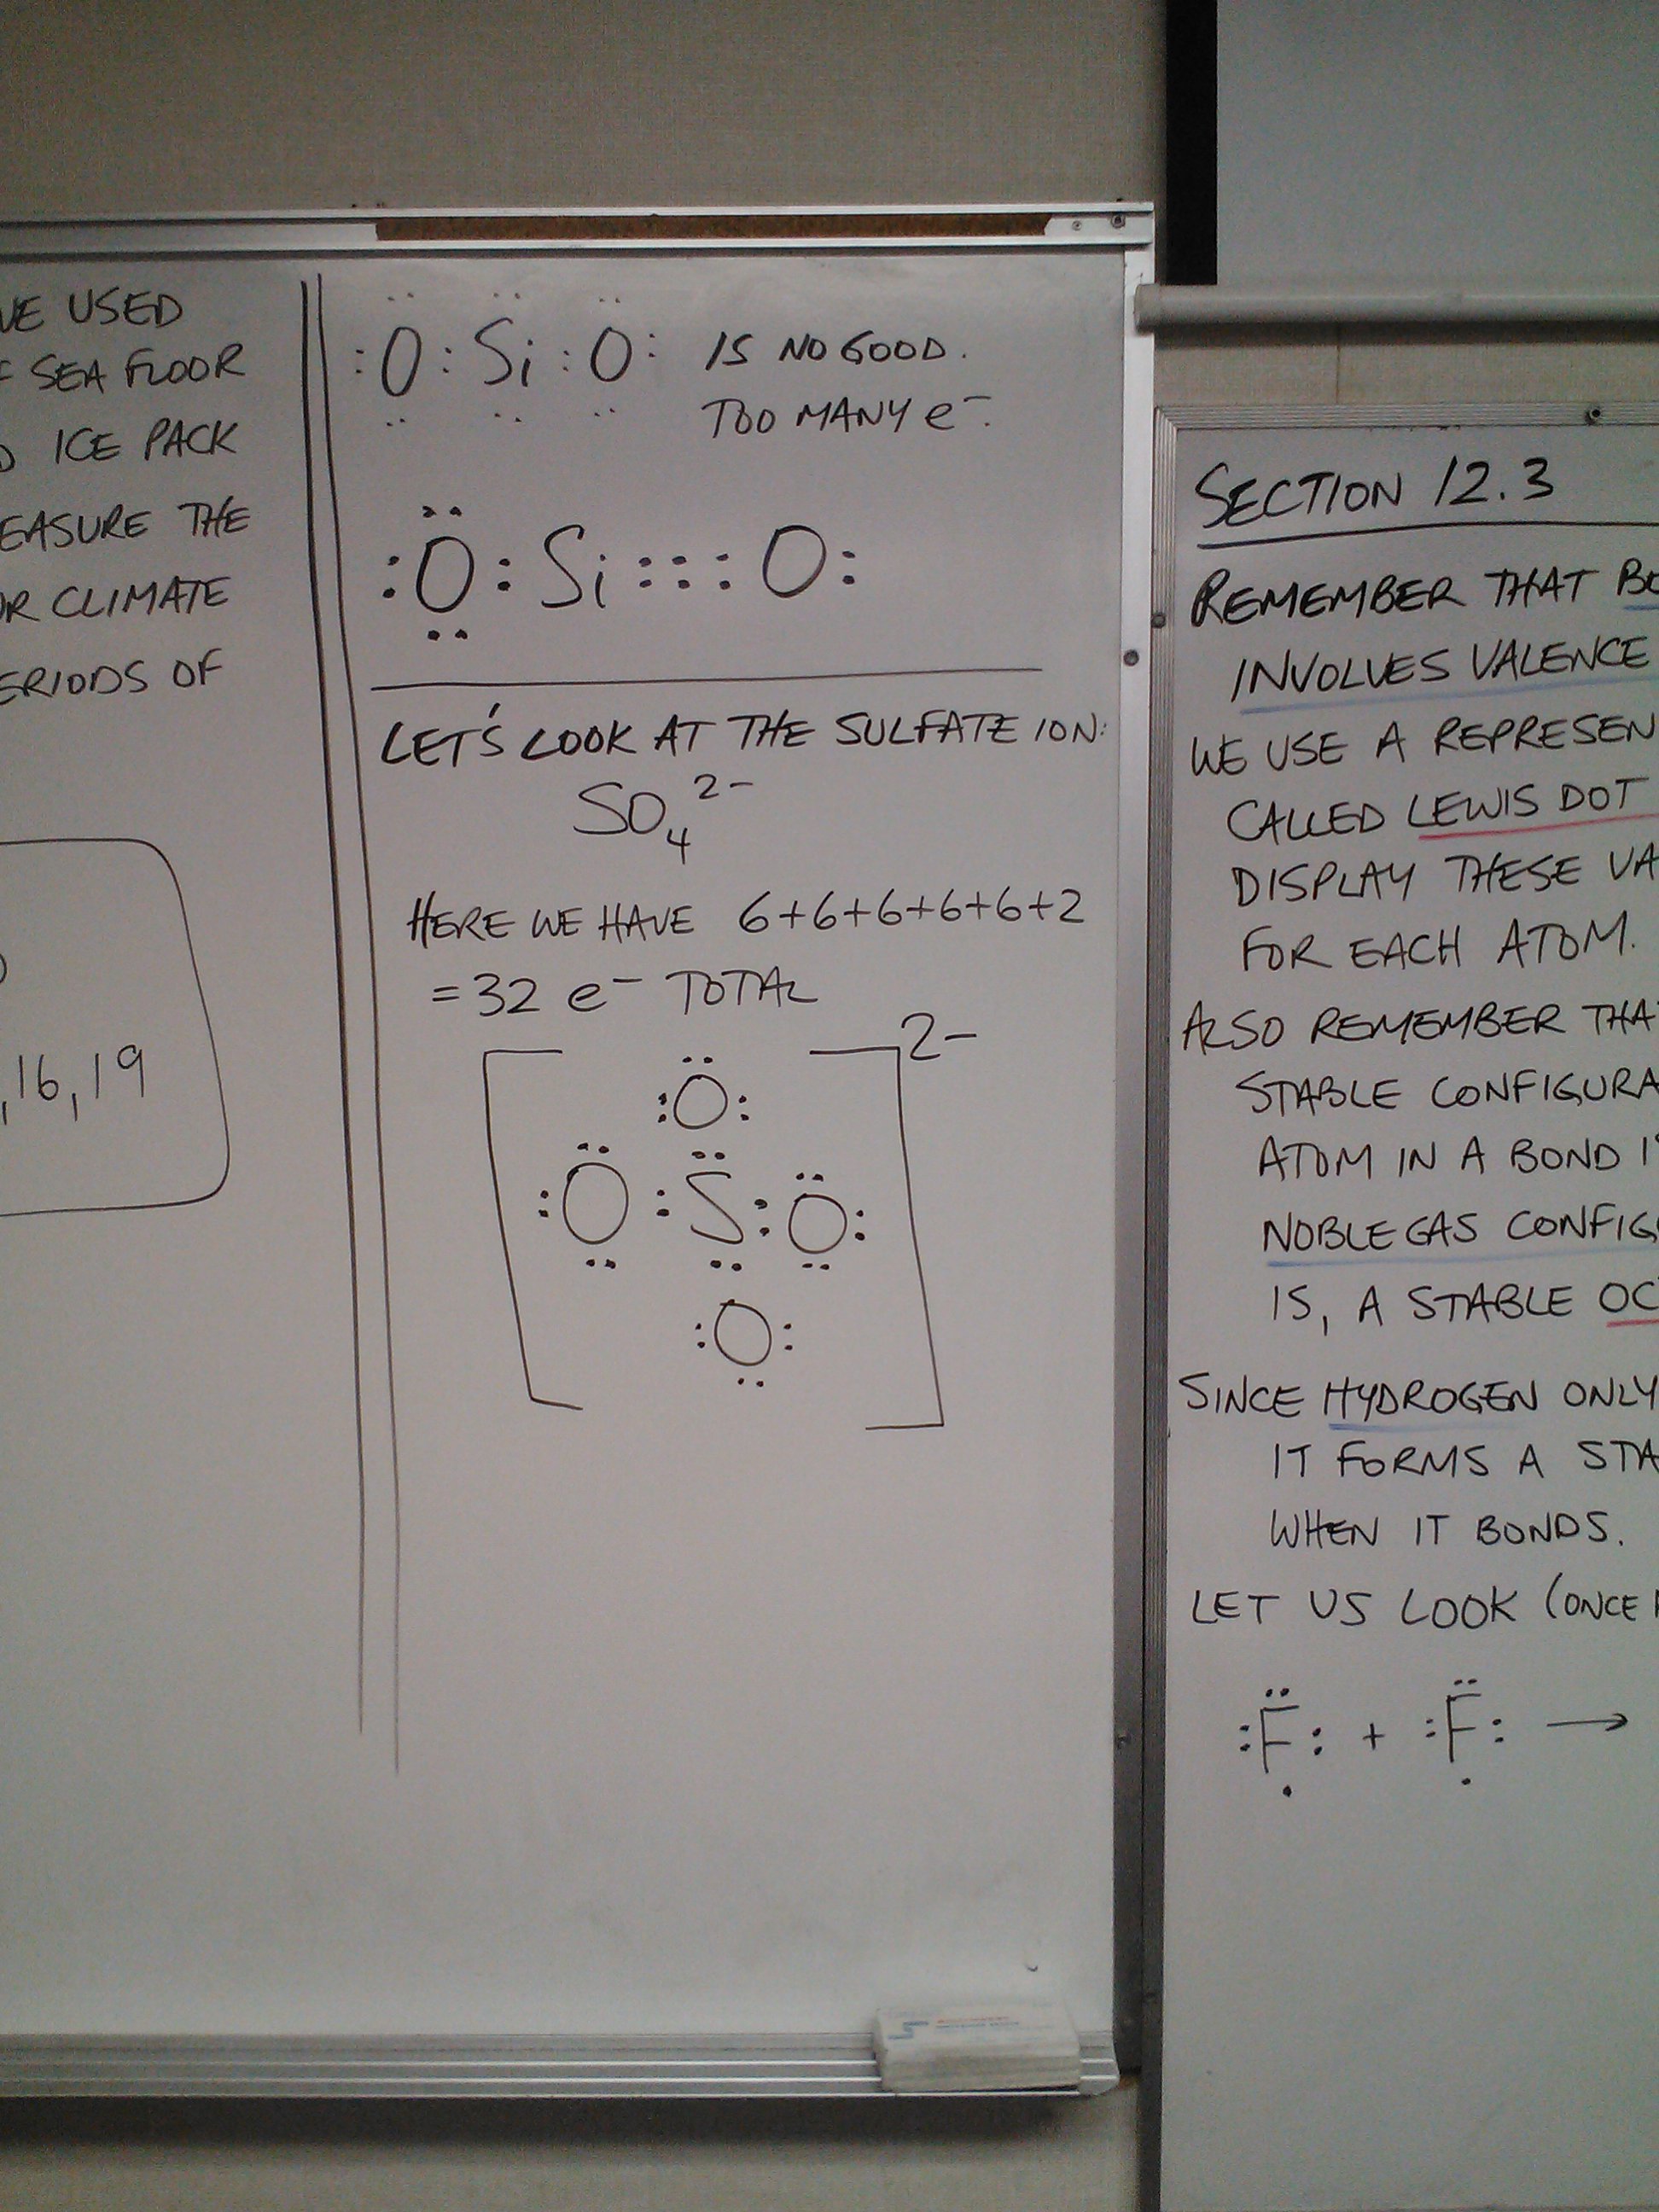 USED
SEA FLOOR
ICE PACK
THE
CLIMATE
OF
,16,19
:O:Si:O: IS NO GOOD.
TOO MANY e⁻.
:O:Si:::O:
LET'S LOOK AT THE SULFATE ION:
SO₄²⁻
HERE WE HAVE 6+6+6+6+6+2
=32 e⁻ TOTAL
2-
:O:
:O:S:O:
:O:
SECTION 12.3
REMEMBER THAT
INVOLVES VALENCE
WE USE A REPRESEN
CALLED LEWIS DOT
DISPLAY THESE VA
FOR EACH ATOM.
ALSO REMEMBER THA
STABLE CONFIGURA
ATOM IN A BOND
NOBLE GAS CONFIG
IS, A STABLE OC
SINCE HYDROGEN ONLY
IT FORMS A STA
WHEN IT BONDS.
LET US LOOK (ONCE
:F: + :F: →